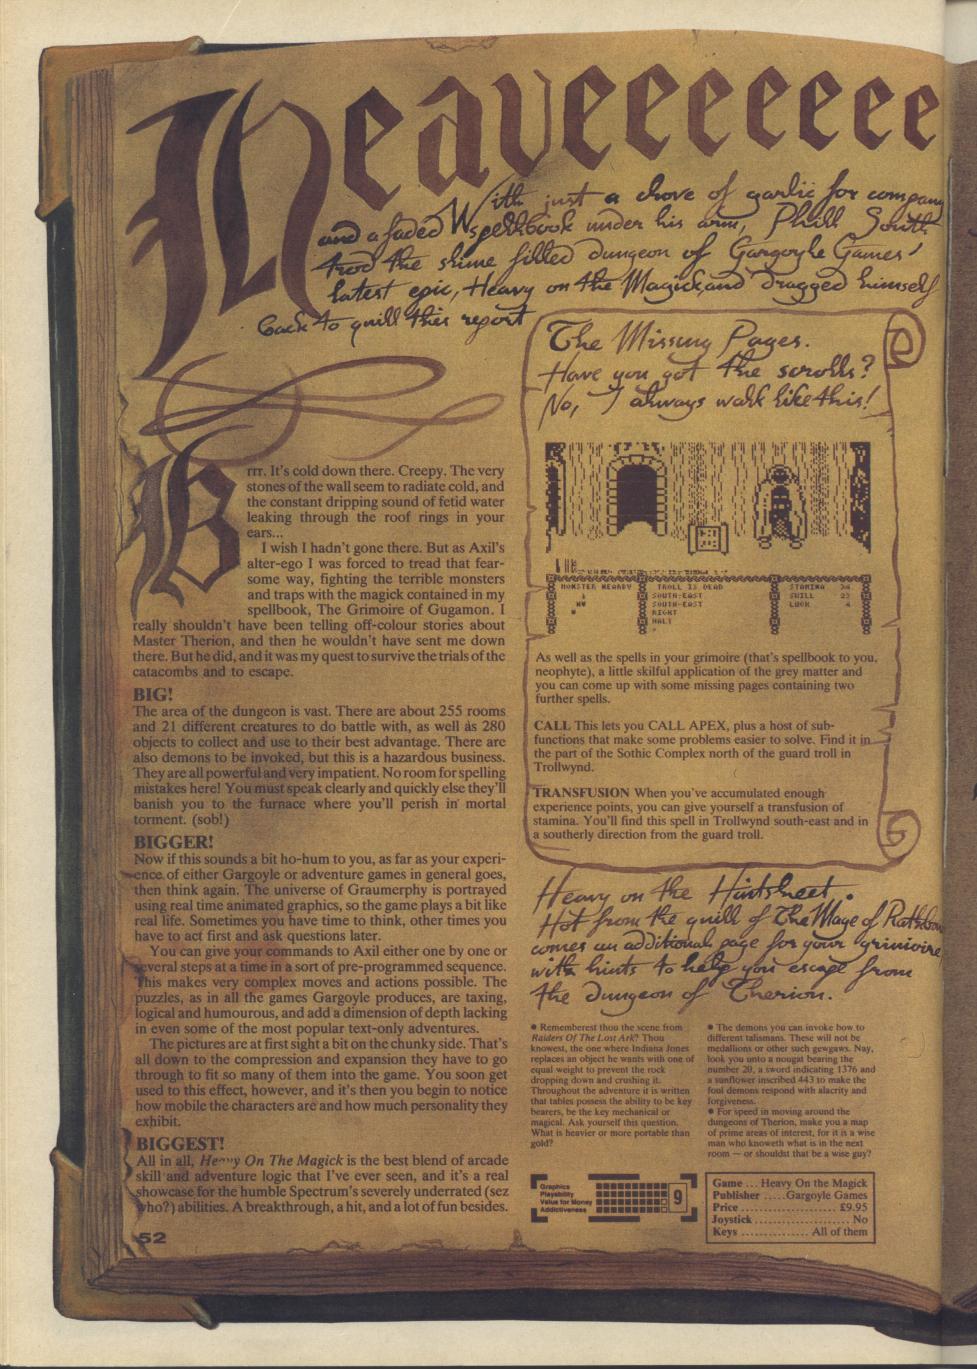 Heaveeeeeee
With just a clove of garlic for company
and a faded spellbook under his arm, Phill South
trod the slime filled dungeon of Gargoyle Games'
latest epic, Heavy on the Magick, and dragged himself
back to quill this report
Brrr. It's cold down there. Creepy. The very
stones of the wall seem to radiate cold, and
the constant dripping sound of fetid water
leaking through the roof rings in your
ears...
I wish I hadn't gone there. But as Axil's
alter-ego I was forced to tread that fear-
some way, fighting the terrible monsters
and traps with the magick contained in my
spellbook, The Grimoire of Gugamon. I
really shouldn't have been telling off-colour stories about
Master Therion, and then he wouldn't have sent me down
there. But he did, and it was my quest to survive the trials of the
catacombs and to escape.
BIG!
The area of the dungeon is vast. There are about 255 rooms
and 21 different creatures to do battle with, as well as 280
objects to collect and use to their best advantage. There are
also demons to be invoked, but this is a hazardous business.
They are all powerful and very impatient. No room for spelling
mistakes here! You must speak clearly and quickly else they'll
banish you to the furnace where you'll perish in mortal
torment. (sob!)
BIGGER!
Now if this sounds a bit ho-hum to you, as far as your experi-
ence of either Gargoyle or adventure games in general goes,
then think again. The universe of Graumerphy is portrayed
using real time animated graphics, so the game plays a bit like
real life. Sometimes you have time to think, other times you
have to act first and ask questions later.
You can give your commands to Axil either one by one or
several steps at a time in a sort of pre-programmed sequence.
This makes very complex moves and actions possible. The
puzzles, as in all the games Gargoyle produces, are taxing,
logical and humourous, and add a dimension of depth lacking
in even some of the most popular text-only adventures.
The pictures are at first sight a bit on the chunky side. That's
all down to the compression and expansion they have to go
through to fit so many of them into the game. You soon get
used to this effect, however, and it's then you begin to notice
how mobile the characters are and how much personality they
exhibit.
BIGGEST!
All in all, Heavy On The Magick is the best blend of arcade
skill and adventure logic that I've ever seen, and it's a real
showcase for the humble Spectrum's severely underrated (sez
who?) abilities. A breakthrough, a hit, and a lot of fun besides.
52
The Missing Pages.
Have you got the scrolls?
No, I always walk like this!
MONSTER NEARBY TROLL IS DEAD STAMINA
SOUTH-EAST SKILL 23
SOUTH-EAST LUCK 4
RIGHT
HALT
As well as the spells in your grimoire (that's spellbook to you,
neophyte), a little skilful application of the grey matter and
you can come up with some missing pages containing two
further spells.
CALL This lets you CALL APEX, plus a host of sub-
functions that make some problems easier to solve. Find it in
the part of the Sothic Complex north of the guard troll in
Trollwynd.
TRANSFUSION When you've accumulated enough
experience points, you can give yourself a transfusion of
stamina. You'll find this spell in Trollwynd south-east and in
a southerly direction from the guard troll.
Heavy on the Hintsheet.
Hot from the quill of The Mage of
comes an additional page for your grimoire,
with hints to help you escape from
the dungeon of Therion.
• Rememberest thou the scene from
Raiders Of The Lost Ark? Thou
knowest, the one where Indiana Jones
replaces an object he wants with one of
equal weight to prevent the rock
dropping down and crushing it.
Throughout the adventure it is written
that tables possess the ability to be key
bearers, be the key mechanical or
magical. Ask yourself this question.
What is heavier or more portable than
gold?
• The demons you can invoke bow to
different talismans. These will not be
medallions or other such gewgaws. Nay,
look you unto a nougat bearing the
number 20, a sword indicating 1376 and
a sunflower inscribed 443 to make the
foul demons respond with alacrity and
forgiveness.
• For speed in moving around the
dungeons of Therion, make you a map
of prime areas of interest, for it is a wise
man who knoweth what is in the next
room — or shouldst that be a wise guy?
Graphics
Playability
Value for Money
Addictiveness
9
Game ... Heavy On the Magick
Publisher ..... Gargoyle Games
Price ........................ £9.95
Joystick ........................ No
Keys ................ All of them